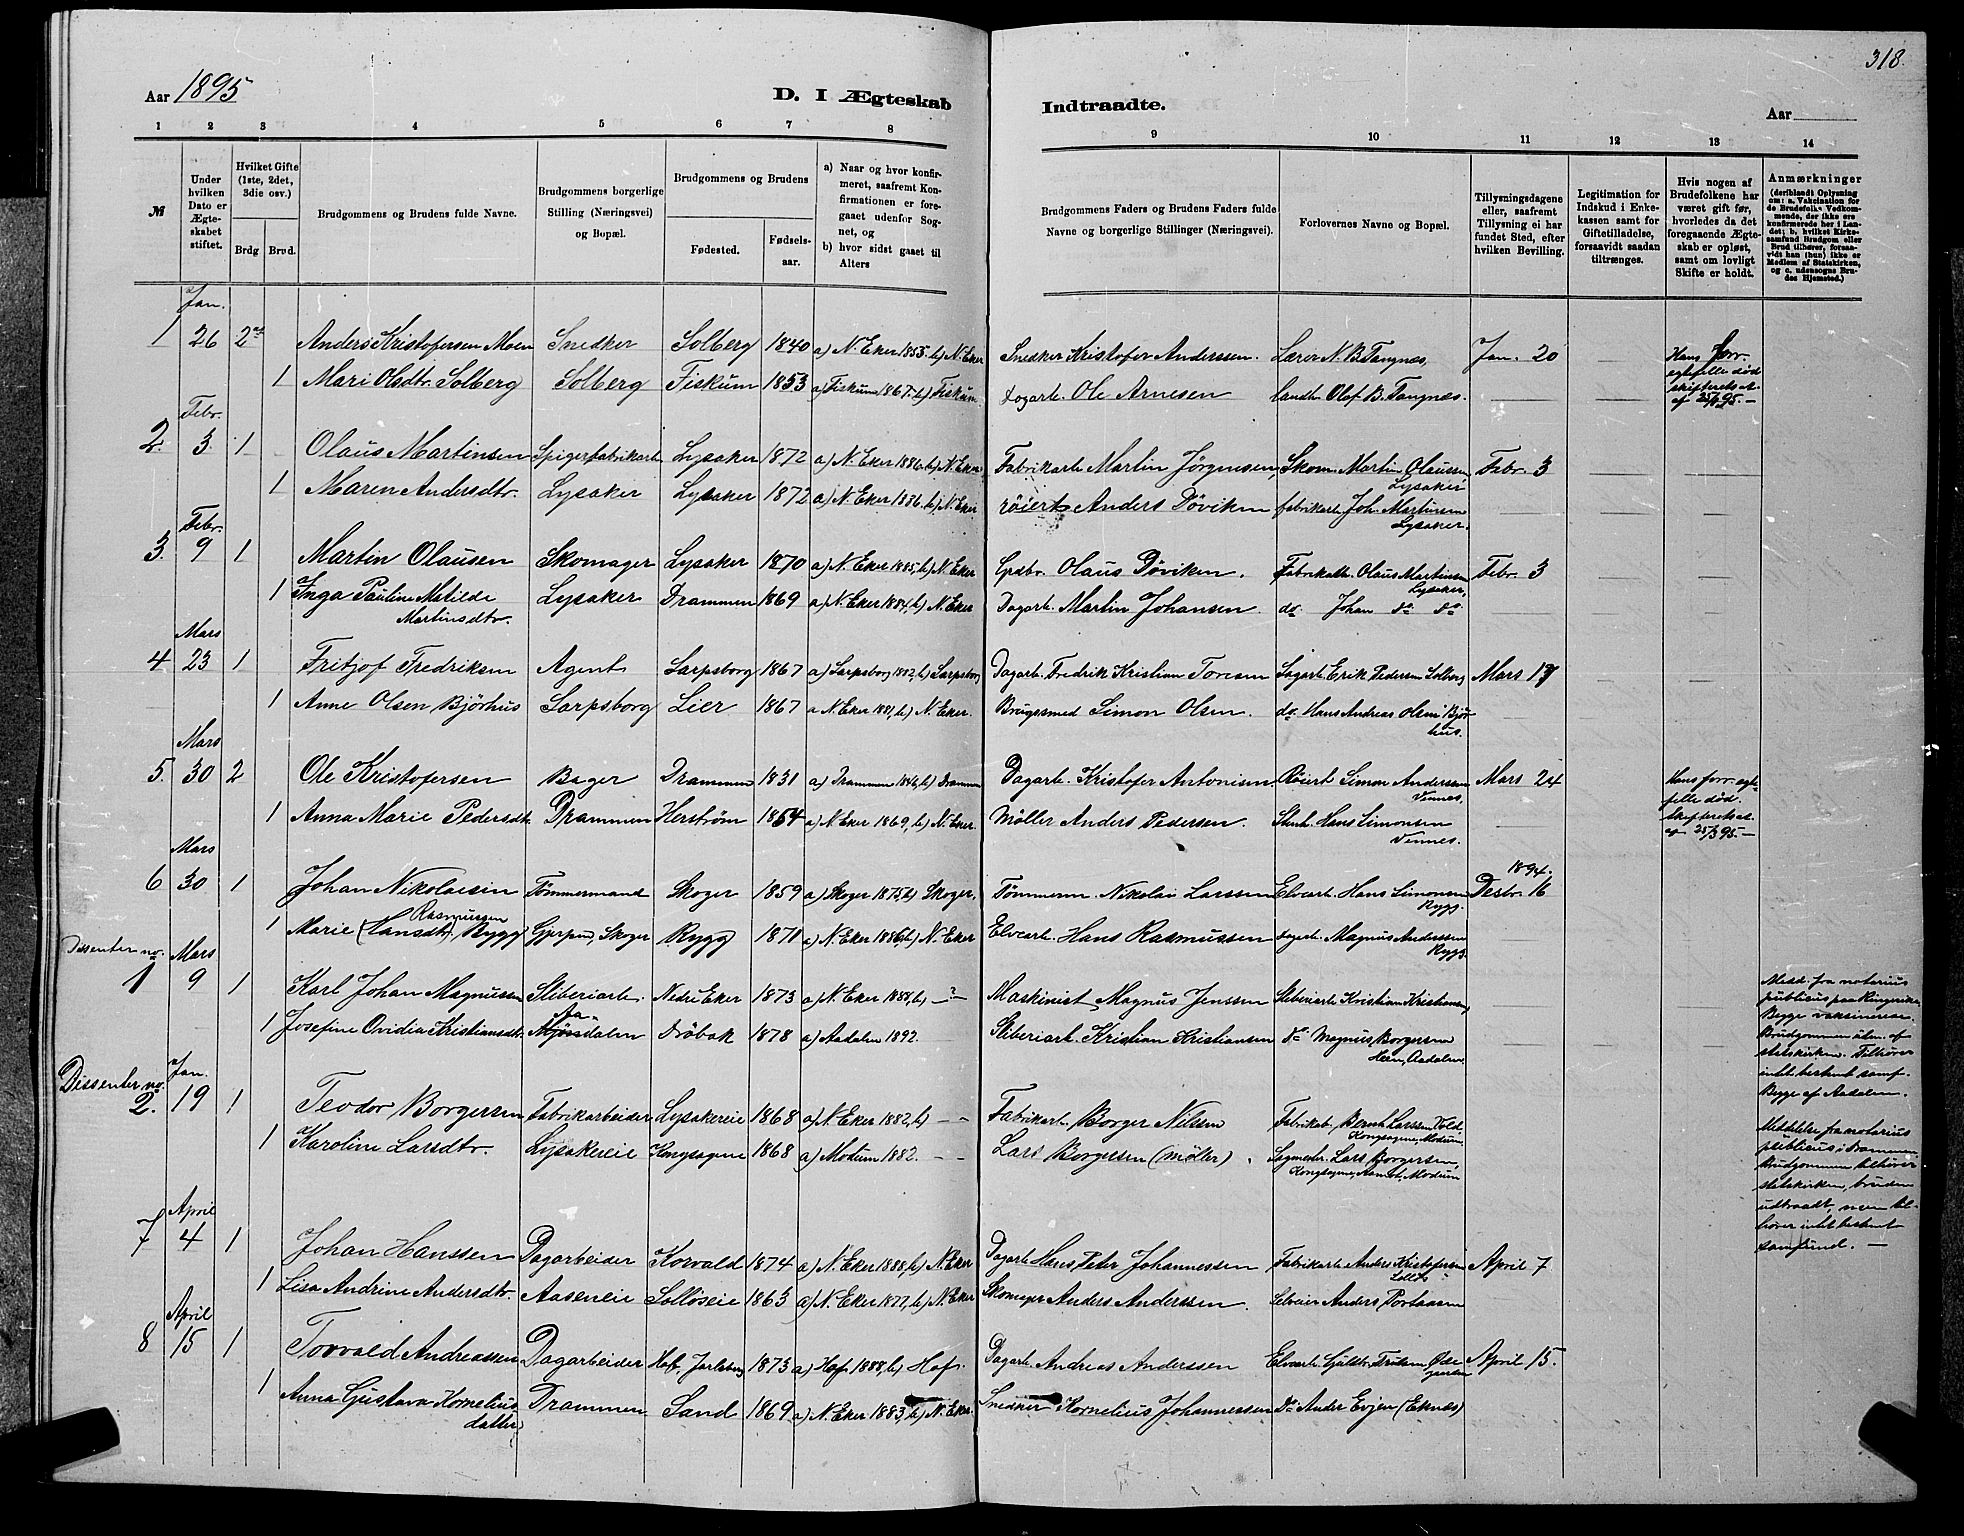 318.
Aar 1895
D. I Ægteskab Indtraadte.
Aar
1 2 3 4 5 6 7 8 9 10 11 12 13 14
№
Under hvilken Dato er Ægteskabet stiftet.
Hvilket Gifte (1ste, 2det, 3die osv.)
Brdg Brud.
Brudgommens og Brudens fulde Navne.
Brudgommens borgerlige Stilling (Næringsvei) og Bopæl.
Brudgommens og Brudens
Fødested. Fødselsaar.
a) Naar og hvor konfirmeret, saafremt Konfirmationen er foregaaet udenfor Sognet, og
b) hvor sidst gaaet til Alters
Brudgommens Faders og Brudens Faders fulde Navne og borgerlige Stillinger (Næringsvei).
Forlovernes Navne og Bopæl.
Tillysningsdagene eller, saafremt Tillysning ei har fundet Sted, efter hvilken Bevilling.
Legitimation for Indskud i Enkekassen samt for Giftetilladelse, forsaavidt saadan tiltrænges.
Hvis nogen af Brudefolkene har været gift før, hvorledes da det foregaaende Ægteskab er opløst, samt om lovligt Skifte er holdt.
Anmærkninger
(deriblandt Oplysning om: a. Vakcination for de Brudefolks Vedkommende, der ikke ere konfirmerede her i Landet; b. hvilket Kirkesamfund Brudgom eller Brud tilhører, forsaavidt han (hun) ikke er Medlem af Statskirken, og c. udensogns Brudes Hjemsted.)
Jan.
1 26 2 Anders Kristofersen Moen Snedker Solberg 1840 a) N. Eker 1855. b) N. Eker Snedker Kristofer Anderssen. Lærer N. B. Tangnæs, Jan. 20 Hans forr.
1 Mari Olsdtr. Solberg Solberg Fiskum 1853 a) Fiskum 1867. b) Fiskum Dagarb. Ole Arnesen Landh. Olaf B. Tangnæs. egtefelle død
skifteretsat. af 25/1 95. —
Febr.
2. 3. 1 Olaus Martinsen Spigerfabrikarb. Lysaker 1872 a) N. Eker 1886. b) N. Eker Fabrikarb. Martin Jørgensen, Skom. Martin Olaussen Lysaker Febr. 3
1 Maren Andersdtr. Lysaker Lysaker 1872 a) N. Eker 1886. b) N. Eker røiert Anders Døviken fabrikarb. Joh. Martinsen Lysaker.
Febr.
3. 9 1 Martin Olausen Skomager Lysaker 1870 a) N. Eker 1885, b) N. Eker Olaus Døviken. Fabrikarb. Olaus Martinsen Lysaker, Febr. 3
1 Inga Pauline Matilde Martinsdtr. Lysaker Drammen 1869 a) N. Eker 1884, b) N. Eker Dagarb. Martin Johansen. do. Johan do do.
Mars
4 23 1 Fritjof Fredriksen Agent Sarpsborg 1867 a) Sarpsborg 1882, b) Sarpsborg Dagarb. Fredrik Kristian Toresen Sagarb. Erik Pedersen Solberg Mars 17
1 Anne Olsen Bjørhus Sarpsborg Lier 1867 a N. Eker 1881, b) N. Eker. Brugssmed Simon Olsen. do. Hans Andreas Olsen Bjørhus.
Mars
5. 30 2 Ole Kristofersen Bager Drammen 1831 a) Drammen 1846, b) Drammen Dagarb. Kristofer Antonisen Røiert Simon Anderssen Vennes, Mars 24 Hans forr. egtefelle død.
1 Anna Marie Pedersdtr. Drammen Herstrøm 1854 a) N. Eker 1869, b) N. Eker. Møller Anders Pedersen. Hans Simonsen Vinnes. Skifteretsat. af 25/3 95. —
Mars 1894.
6 30 1 Johan Nikolaisen Tømmermand Skoger 1859 a) Skoger 1875, b) Skoger. Tømmerm. Nikolai Larssen Elvearb. Hans Simonsen Rygg. Desbr. 16
1 Marie (Hansdtr.) Rasmussen Rygg Gjerpen, Skoger Rygg 1871 a) N. Eker 1886, b) N. Eker Elvearb. Hans Rasmussen Dagarb. Magnus Anderssen Rygg.
Dissenter no. Mars
1 9 1 Karl Johan Magnussen Sliberiarb. Nedre Eker 1873 a) N. Eker 1888, b) —?— Maskinist Magnus Jenssen Sliberiarb. Kristian Kristiansen,
1 Josefine Ovidia Kristiansdtr. Aadalen Drøbak 1878 a) Aadalen 1892. Sliberiarb. Kristian Kristiansen do Magnus Borgersen Hen, Aadalen.
Medd. fra notarius
publicus paa Ringerike.
Begge vaksinerer.
Brudgommen uten. af
statskirken. Tilhører
intet bestemt samf.
Begge af Aadalen.
Dissenter no. Jan.
2. 19 1 Teodor Borgersen Fabrikarbeider Lysakereie 1868 a) N. Eker 1882, b) — Fabrikarb. Borger Nilssen Fabrikab. Bernh. Larssen Kongsegne, Modum
1 Karoline Larsdtr. Lysakereie Kongsegne 1868 a) Modum 1882. — Lars Borgersen (møller). Sagmester. Lars Borgersen, Kongsegne, Aamot, Modum
Meddelse fra notarius
publicus i Drammen
Brudgommen tilhører
statskirken, bruden
udtraadt, men tilhører intet bestemt
samfund. —
April
7 4 1 Johan Hanssen Dagarbeider Korvald 1874 a) N. Eker 1888, b) N. Eker Dagarb. Hans Peter Johannessen Fabrikarb. Anders Kristofersen April 7
1 Lisa Andrine Andersdtr. Aaseneie Solløseie 1863 a) N. Eker 1877, b) N. Eker Skomager Anders Anderssen. Selveier Anders Portaasen
April
8 15 1 Torvald Andreassen Dagarbeider Hof, Jarlsberg 1873 a) Hof 1888, b) Hof. Dagarb. Andreas Anderssen Elvearb. April 15.
1 Anna Gustava Korneliusdatter Drammen Sand 1869 a) N. Eker 1883, b) N. Eker. Snedker Kornelius Johannessen Do Ander Evjen (Eknæs)